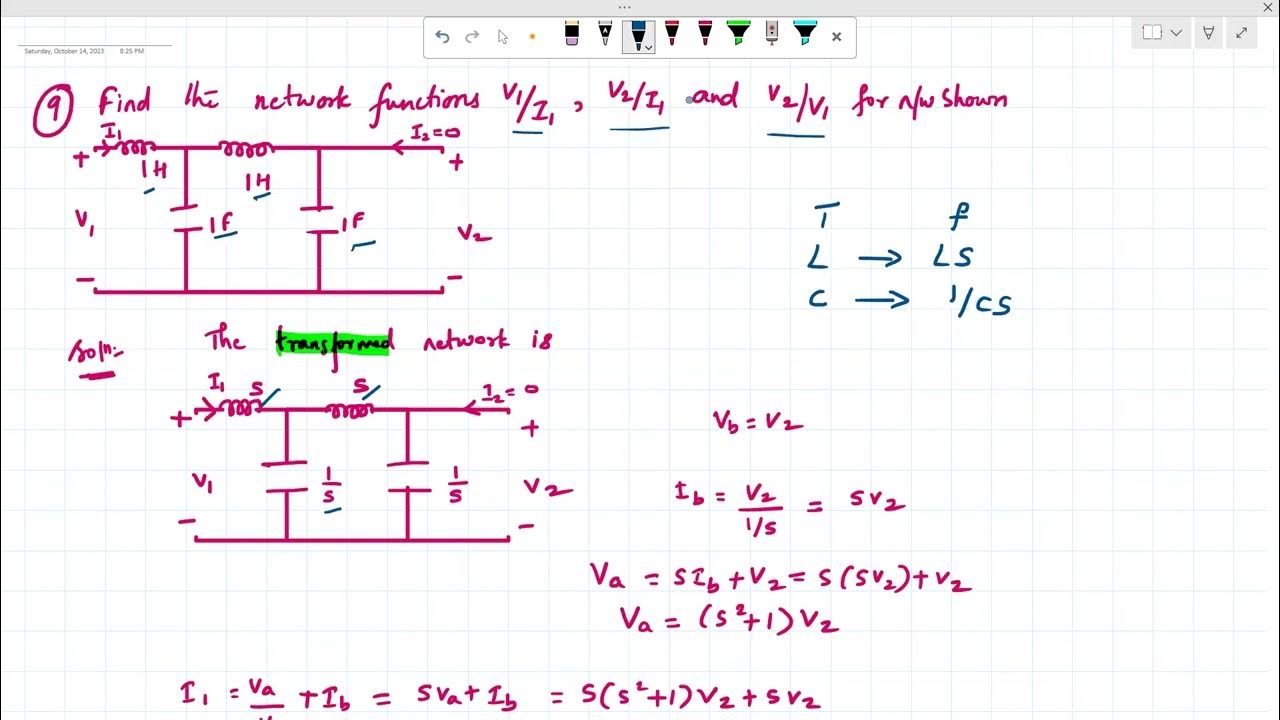 Saturday, October 14, 2023 8:25 PM
9 Find the network functions V1/I1, V2/I1 and V2/V1 for n/w shown
I1 I2=0
+ 1H 1H +
V1 1F 1F V2
− −
T f
L → LS
C → 1/CS
Soln:- The transformed network is
I1 S S I2=0
+ +
V1 1/S 1/S V2
− −
Vb = V2
Ib = V2/(1/S) = SV2
Va = SIb + V2 = S(SV2) + V2
Va = (S²+1)V2
I1 = Va/ + Ib = SVa + Ib = S(S²+1)V2 + SV2